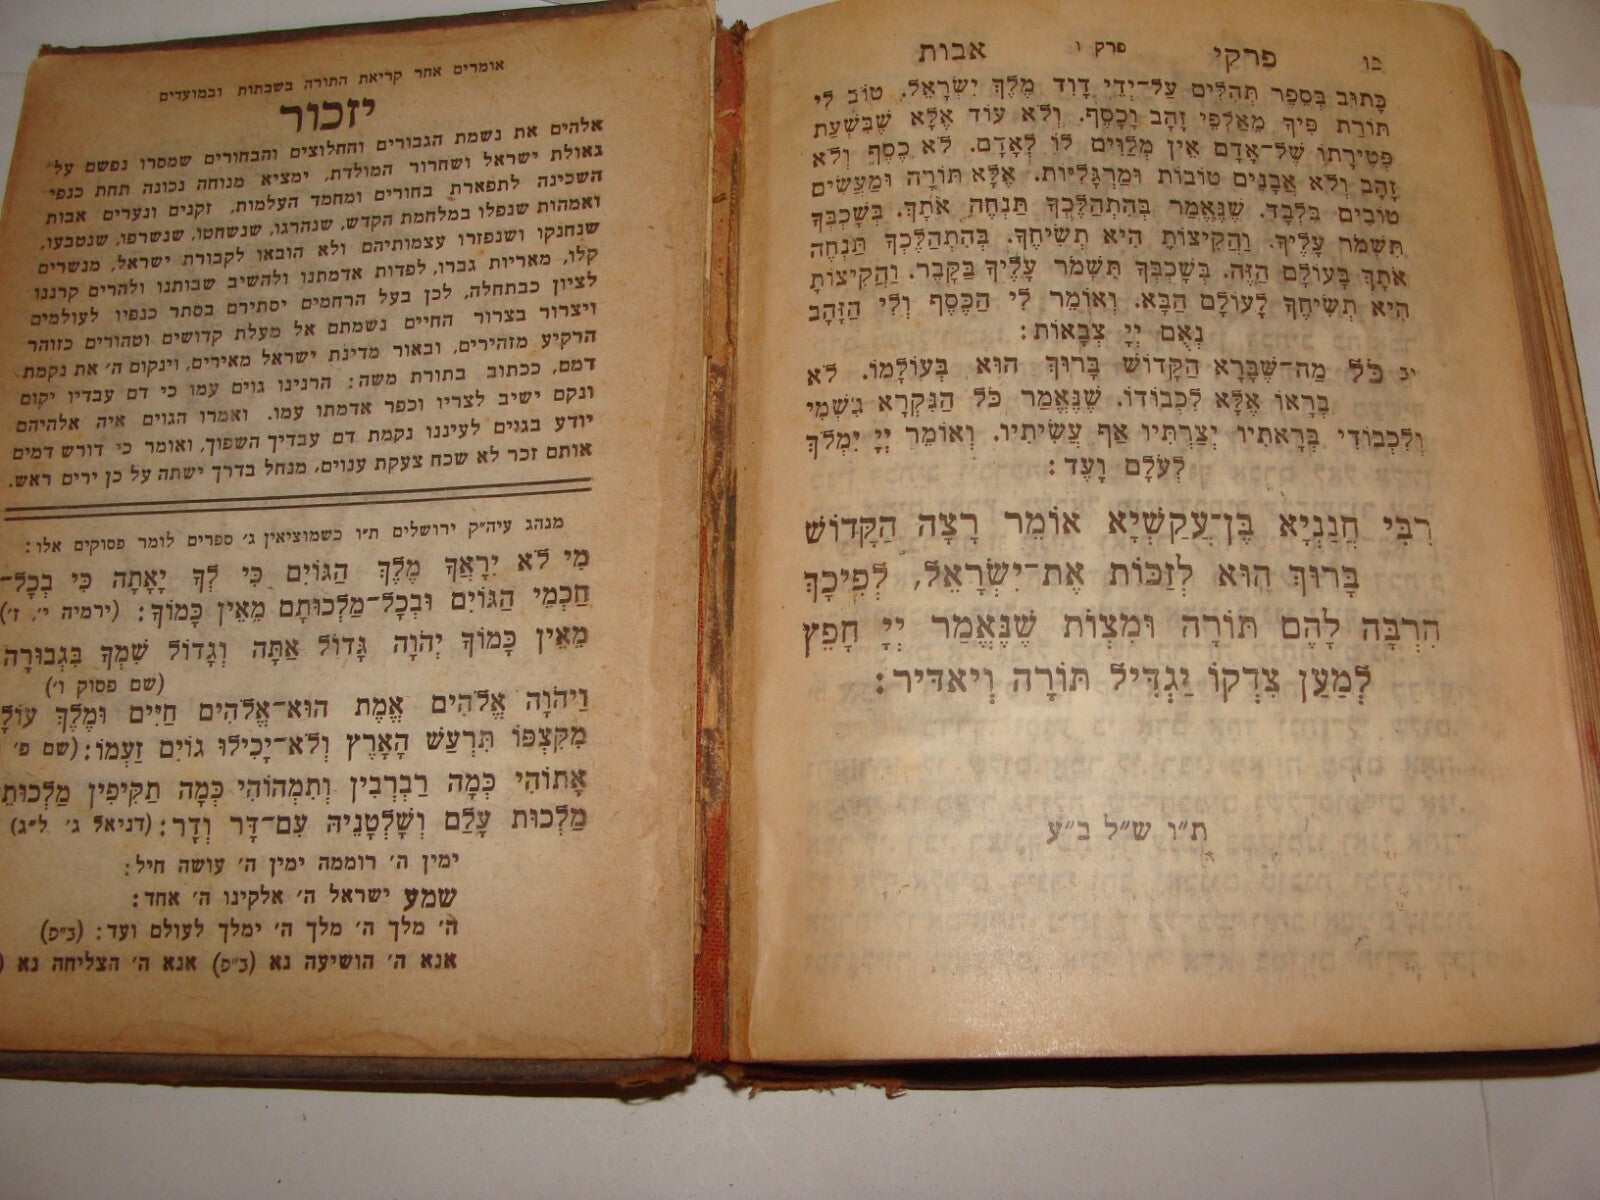 כו פרקי פרק ו אבות
כָּתוּב בְּסֵפֶר תְּהִלִּים עַל־יְדֵי דָוִד מֶלֶךְ יִשְׂרָאֵל. טוֹב לִי
תּוֹרַת פִּיךָ מֵאַלְפֵי זָהָב וָכָסֶף. וְלֹא עוֹד אֶלָּא שֶׁבִּשְׁעַת
פְּטִירָתוֹ שֶׁל־אָדָם אֵין מְלַוִּים לוֹ לְאָדָם. לֹא כֶסֶף וְלֹא
זָהָב וְלֹא אֲבָנִים טוֹבוֹת וּמַרְגָּלִיּוֹת. אֶלָּא תּוֹרָה וּמַעֲשִׂים
טוֹבִים בִּלְבָד. שֶׁנֶּאֱמַר בְּהִתְהַלֶּכְךָ תַּנְחֶה אֹתָךְ. בְּשָׁכְבְּךָ
תִּשְׁמֹר עָלֶיךָ. וַהֲקִיצוֹתָ הִיא תְשִׂיחֶךָ. בְּהִתְהַלֶּכְךָ תַּנְחֶה
אֹתָךְ בָּעוֹלָם הַזֶּה. בְּשָׁכְבְּךָ תִּשְׁמֹר עָלֶיךָ בַּקָּבֶר. וַהֲקִיצוֹתָ
הִיא תְשִׂיחֶךָ לָעוֹלָם הַבָּא. וְאוֹמֵר לִי הַכֶּסֶף וְלִי הַזָּהָב
נְאֻם יְיָ צְבָאוֹת:
כֹּל מַה־שֶּׁבָּרָא הַקָּדוֹשׁ בָּרוּךְ הוּא בְּעוֹלָמוֹ. לֹא
בְרָאוֹ אֶלָּא לִכְבוֹדוֹ. שֶׁנֶּאֱמַר כֹּל הַנִּקְרָא בִשְׁמִי
וְלִכְבוֹדִי בְּרָאתִיו יְצַרְתִּיו אַף עֲשִׂיתִיו. וְאוֹמֵר יְיָ יִמְלֹךְ
לְעֹלָם וָעֶד:
רִבִּי חֲנַנְיָא בֶּן־עֲקַשְׁיָא אוֹמֵר רָצָה הַקָּדוֹשׁ
בָּרוּךְ הוּא לְזַכּוֹת אֶת־יִשְׂרָאֵל, לְפִיכָךְ
הִרְבָּה לָהֶם תּוֹרָה וּמִצְוֹת שֶׁנֶּאֱמַר יְיָ חָפֵץ
לְמַעַן צִדְקוֹ יַגְדִּיל תּוֹרָה וְיַאדִּיר:
ת״ו ש״ל ב״ע
אומרים אחר קריאת התורה בשבתות ובמועדים
יזכור
אלהים את נשמת הגבורים והחלוצים והבחורים שמסרו נפשם על
גאולת ישראל ושחרור המולדת, ימציא מנוחה נכונה תחת כנפי
השכינה לתפארת בחורים ומחמד העלמות, זקנים ונערים אבות
ואמהות שנפלו במלחמת הקדש, שנהרגו, שנשחטו, שנשרפו, שנטבעו,
שנחנקו ושנפזרו עצמותיהם ולא הובאו לקבורת ישראל, מנשרים
קלו, מאריות גברו, לפדות אדמתנו ולהשיב שבותנו ולהרים קרננו
לציון כבתחלה, לכן בעל הרחמים יסתירם בסתר כנפיו לעולמים
ויצרור בצרור החיים נשמתם אל מעלת קדושים וטהורים כזוהר
הרקיע מזהירים, ובאור מדינת ישראל מאירים, וינקום ה׳ את נקמת
דמם, ככתוב בתורת משה: הרנינו גוים עמו כי דם עבדיו יקום
ונקם ישיב לצריו וכפר אדמתו עמו. ואמרו הגוים איה אלהיהם
יודע בגוים לעיננו נקמת דם עבדיך השפוך, ואומר כי דורש דמים
אותם זכר לא שכח צעקת ענוים, מנחל בדרך ישתה על כן ירים ראש.
מנהג עיה״ק ירושלים ת״ו כשמוציאין ג׳ ספרים לומר פסוקים אלו:
מִי לֹא יִרָאֲךָ מֶלֶךְ הַגּוֹיִם כִּי לְךָ יָאָתָה כִּי בְכָל־
חַכְמֵי הַגּוֹיִם וּבְכָל־מַלְכוּתָם מֵאֵין כָּמוֹךָ: (ירמיה י׳, ז׳)
מֵאֵין כָּמוֹךָ יְהֹוָה גָּדוֹל אַתָּה וְגָדוֹל שִׁמְךָ בִּגְבוּרָה
(שם פסוק ו׳)
וַיהֹוָה אֱלֹהִים אֱמֶת הוּא־אֱלֹהִים חַיִּים וּמֶלֶךְ עוֹלָ
מִקִּצְפּוֹ תִּרְעַשׁ הָאָרֶץ וְלֹא־יָכִילוּ גוֹיִם זַעְמוֹ: (שם פ׳
אָתוֹהִי כְּמָה רַבְרְבִין וְתִמְהוֹהִי כְּמָה תַקִּיפִין מַלְכוּתֵ
מַלְכוּת עָלַם וְשָׁלְטָנֵיהּ עִם־דָּר וְדָר: (דניאל ג׳ ל״ג)
ימין ה׳ רוממה ימין ה׳ עושה חיל:
שמע ישראל ה׳ אלקינו ה׳ אחד:
ה׳ מלך ה׳ מלך ה׳ ימלך לעולם ועד: (ב״פ)
אנא ה׳ הושיעה נא (ב״פ) אנא ה׳ הצליחה נא (